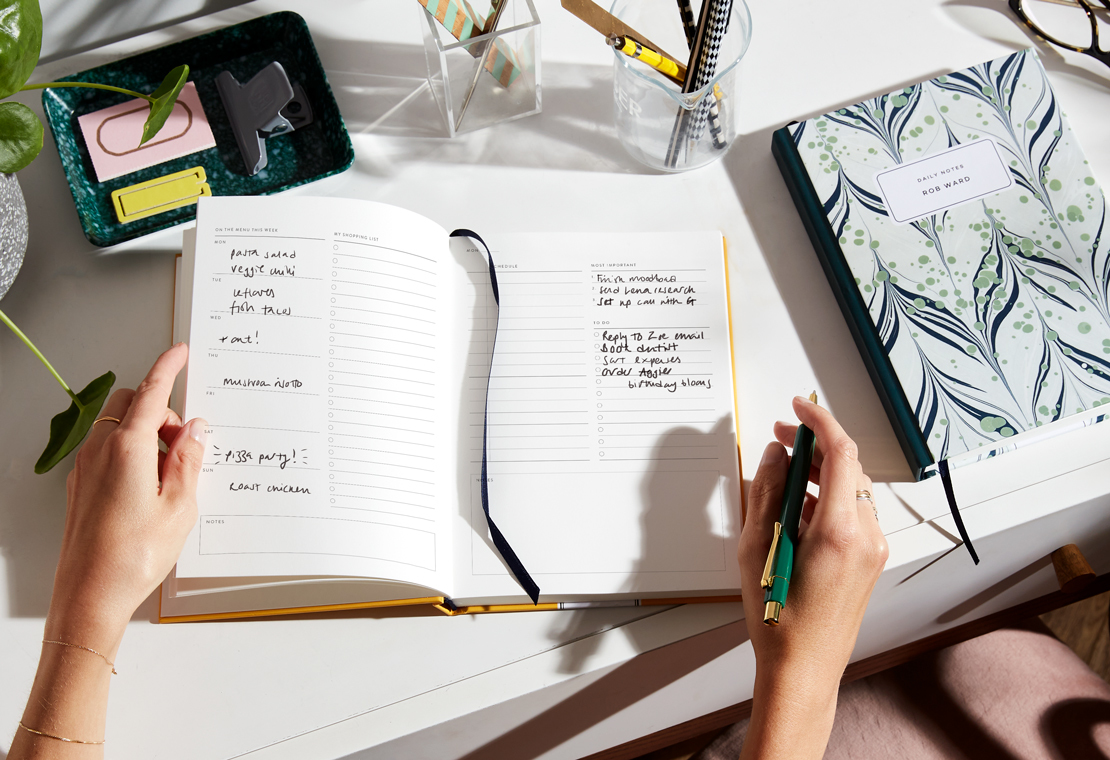 ON THE MENU THIS WEEK
MON
pasta salad
veggie chilli
TUE
leftovers
fish tacos
WED
+ out!
THU
mushroom risotto
FRI
SAT
pizza party!
SUN
Roast chicken
NOTES
MY SHOPPING LIST
MON
SCHEDULE
MOST IMPORTANT
1 Finish moodboard
2 Send Lena research
3 Set up call with G
TO DO
Reply to Zoe email
Book dentist
Sort expenses
Order Aggies
birthday blooms
NOTES
DAILY NOTES
ROB WARD